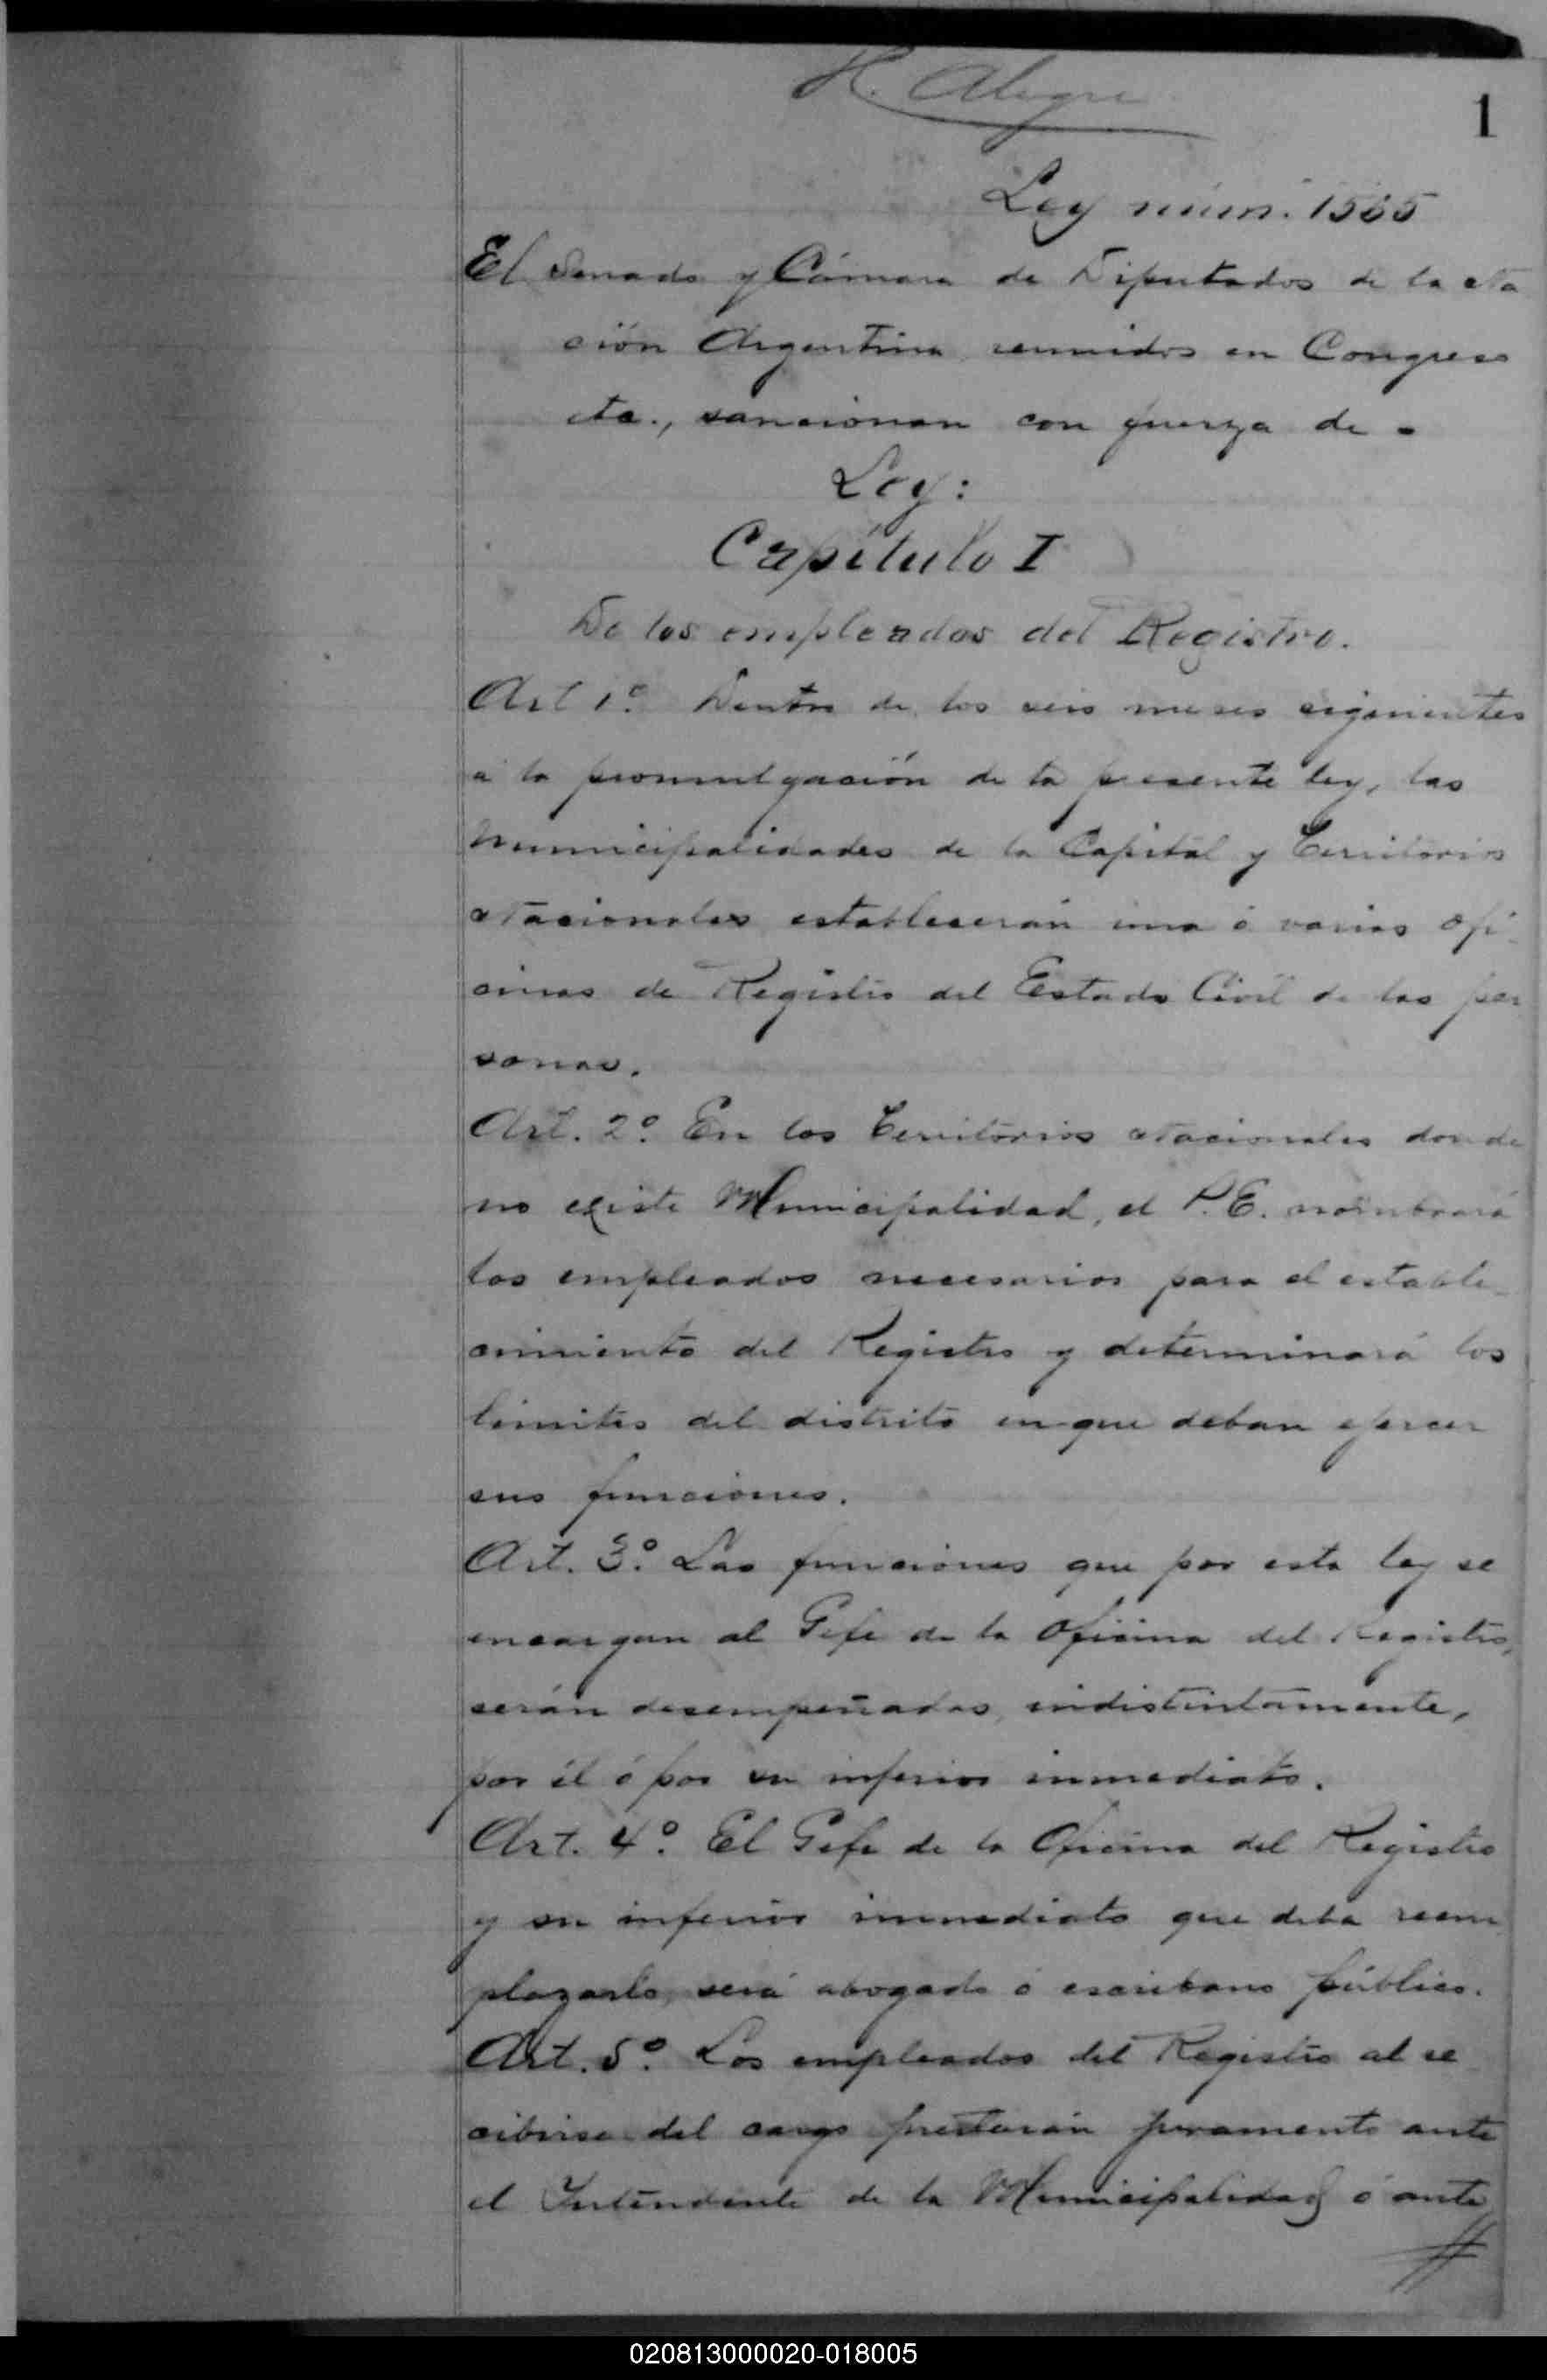 H. Alegre
1
Ley núm. 1565
El Senado y Cámara de Diputados de la Na
ción Argentina reunidos en Congreso
etc., sancionan con fuerza de -
Ley:
Capítulo I
De los empleados del Registro.
Art 1º. Dentro de los seis meses siguientes
á la promulgación de la presente ley, las
Municipalidades de la Capital y Territorios
Nacionales establecerán una ó varias ofi-
cinas de Registro del Estado Civil de las per
sonas.
Art. 2º. En los Territorios Nacionales donde
no existe Municipalidad, el P. E. nombrará
los empleados necesarios para el estable-
cimiento del Registro y determinará los
limites del distrito en que deban ejercer
sus funciones.
Art. 3º. Las funciones que por esta ley se
encargan al Gefe de la Oficina del Registro,
serán desempeñadas, indistintamente,
por él ó por su inferior inmediato.
Art. 4º. El Gefe de la Oficina del Registro
y su inferior inmediato que deba reem
plazarlo, será abogado ó escribano público.
Art. 5º. Los empleados del Registro al re
cibirse del cargo prestarán juramento ante
el Intendente de la Municipalidad ó ante
020813000020-018005